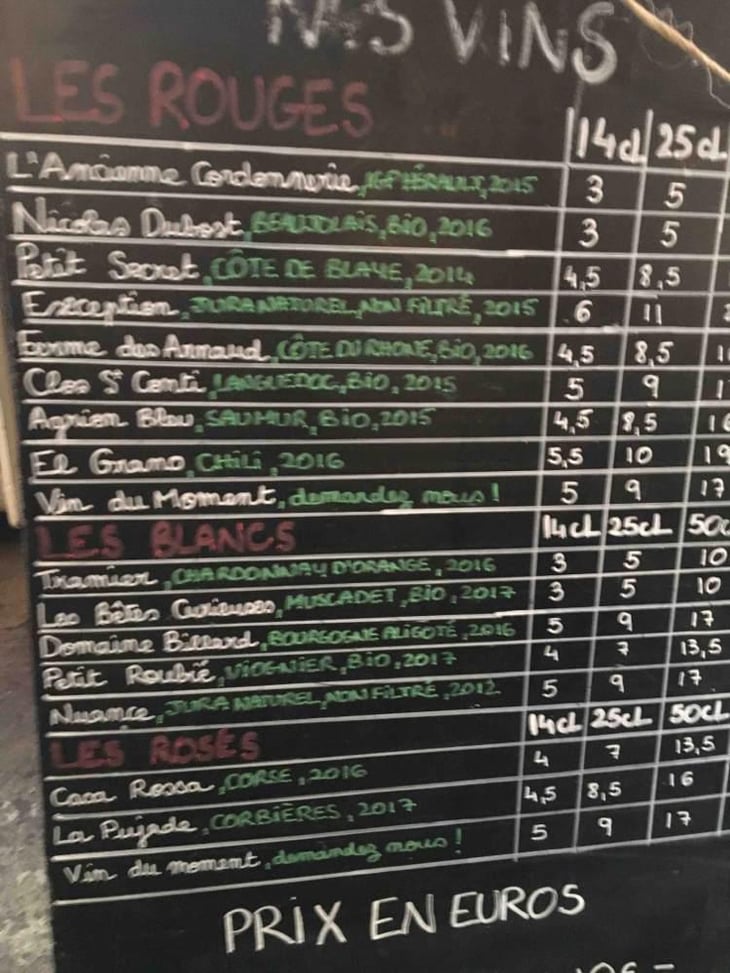 NOS VINS
LES ROUGES 14cl 25cl
L'Ancienne Cordonnerie, IGP HÉRAULT, 2015 3 5
Nicolas Dubost, BEAUJOLAIS, BIO, 2016 3 5
Petit Secret, CÔTE DE BLAYE, 2014 4,5 8,5
Exception, JURA NATUREL, NON FILTRÉ, 2015 6 11
Ferme des Arnaud, CÔTE DU RHONE, BIO, 2016 4,5 8,5
Clos St Conti, LANGUEDOC, BIO, 2015 5 9
Agrion Bleu, SAUMUR, BIO, 2015 4,5 8,5 16
El Grano, CHILI, 2016 5,5 10 19
Vin du Moment, demandez nous! 5 9 17
LES BLANCS 14cl 25cl 50c
Tramier, CHARDONNAY D'ORANGE, 2016 3 5 10
Les Bêtes Curieuses, MUSCADET, BIO, 2017 3 5 10
Domaine Billard, BOURGOGNE ALIGOTÉ, 2016 5 9 17
Petit Roubié, VIOGNIER, BIO, 2017 4 7 13,5
Nuance, JURA NATUREL, NON FILTRÉ, 2012 5 9 17
LES ROSÉS 14cl 25cl 50cl
Casa Rossa, CORSE, 2016 4 7 13,5
La Pujade, CORBIÈRES, 2017 4,5 8,5 16
Vin du moment, demandez nous! 5 9 17
PRIX EN EUROS